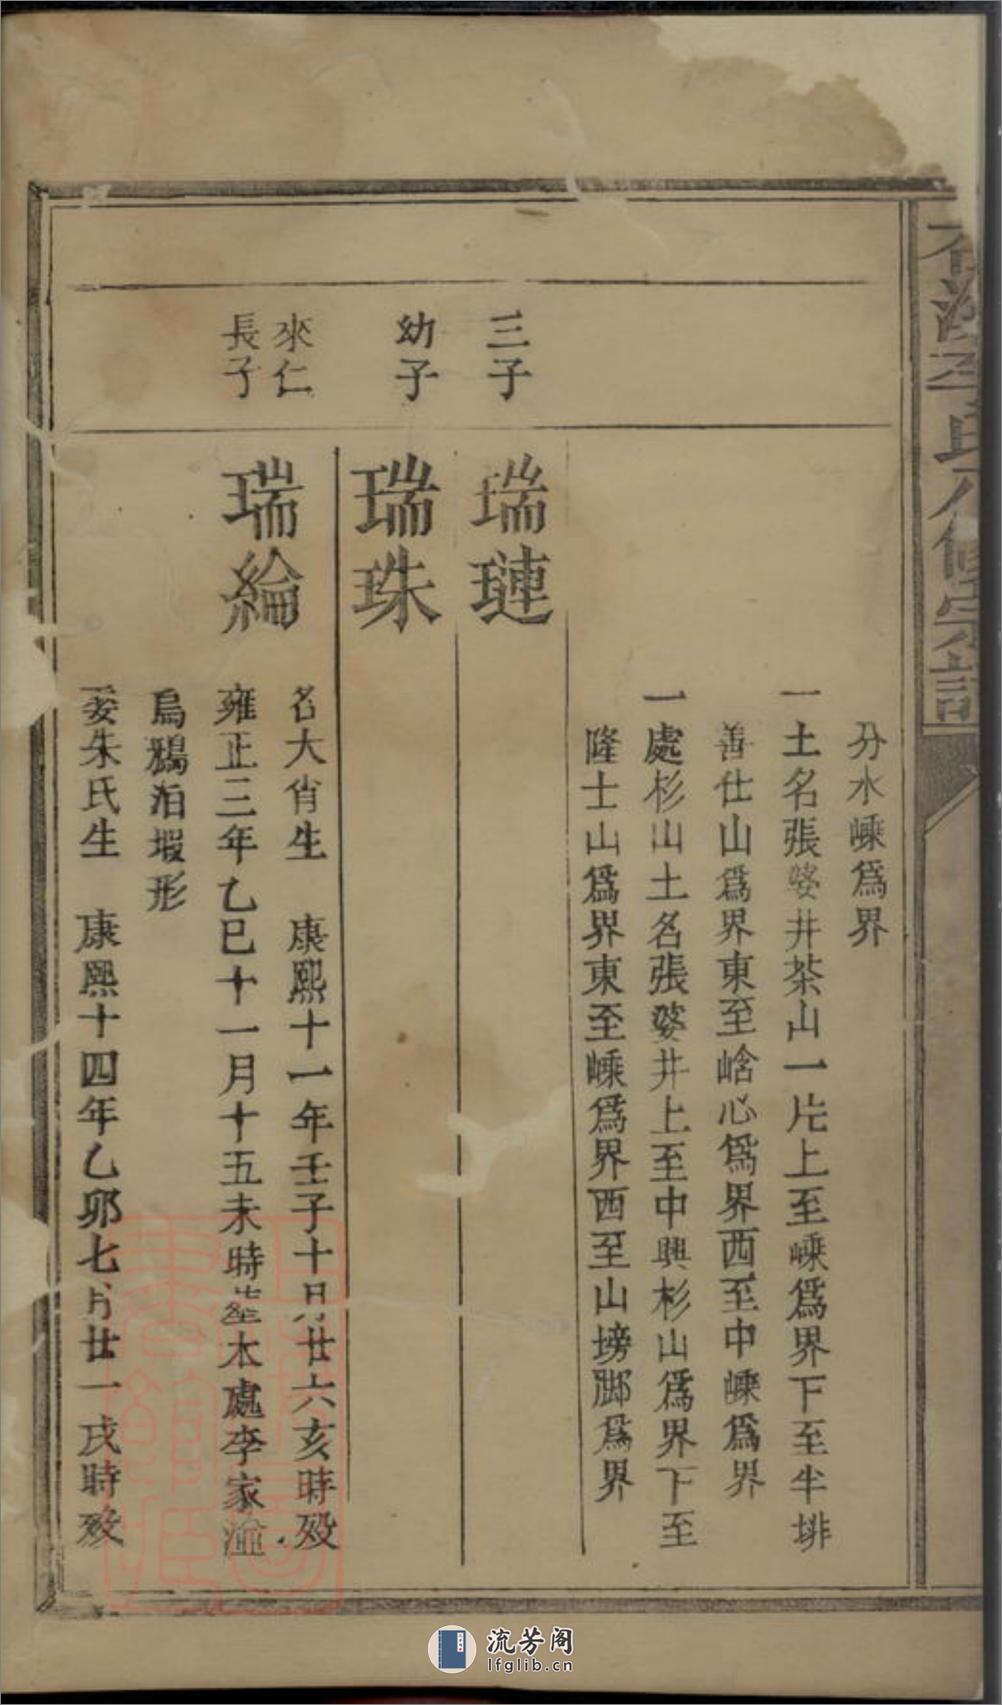 李氏八修宗譜
分水嵊為界
一土名張婆井茶山一片上至嵊為界下至半排
善仕山為界東至峆心為界西至中嵊為界
一處杉山土名張婆井上至中興杉山為界下至
隆士山為界東至嵊為界西至山塝腳為界
三子
瑞璉
幼子
瑞珠
來仁
長子
瑞綸
名大肖生 康熙十一年壬子十月廿六亥時歿
雍正三年乙巳十一月十五未時葬本處李家
烏鴉泊塅形
妻朱氏生 康熙十四年乙卯七月廿一戌時歿
流芳阁
lfglib.cn